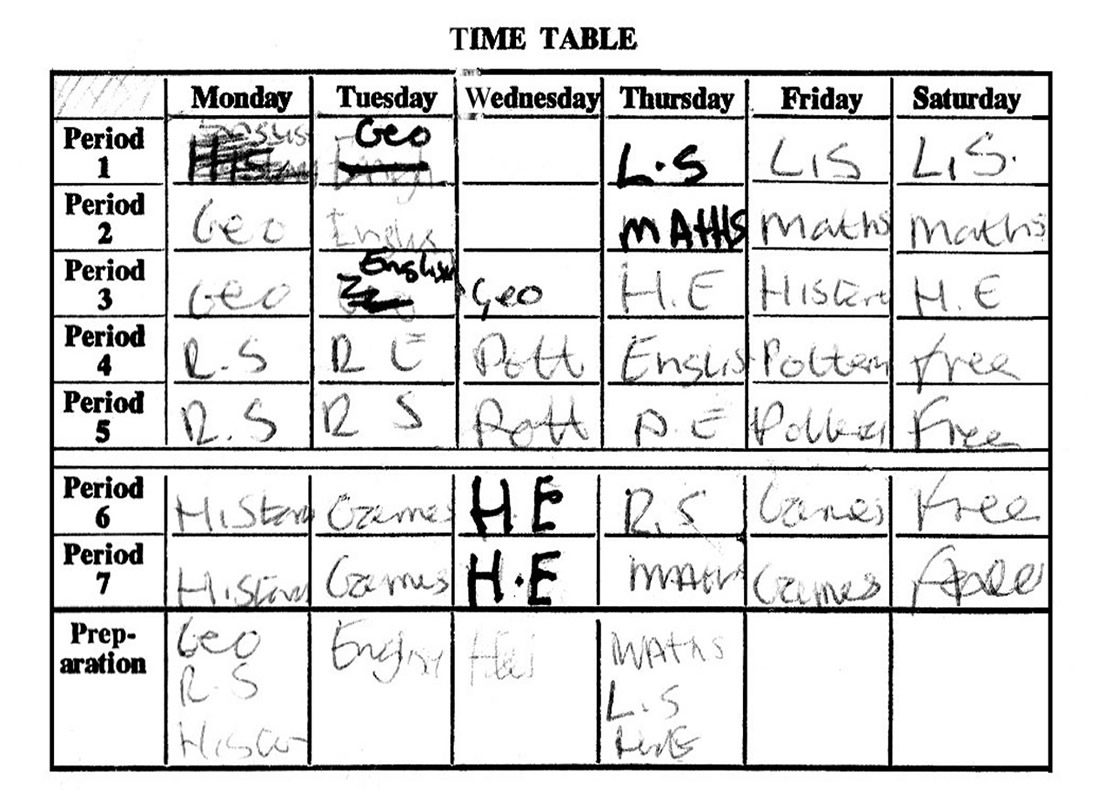 TIME TABLE
Monday Tuesday Wednesday Thursday Friday Saturday
Period 1 Geo L.S LIS L,S.
Period 2 Geo Englis MATHS Maths Maths
Period 3 Geo English Geo H.E History H.E
Period 4 R.S R E Pott Englis Pottery free
Period 5 R.S R S Pott P.E Pottery Free
Period 6 History Games H.E R.S Games Free
Period 7 History Games H.E MATH Games
Prep-
aration
Geo English MATHS
R.S L.S
Histo